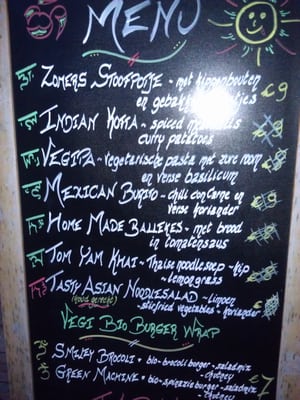 MENU
ZOMERS STOOFPOTJE - met kippenbouten
en gebakken
€9
INDIAN KOFTA - spiced
curry potatoes
VEGIPA - vegetarische pasta met zure room
en verse basilicum
MEXICAN BURITO - chili con carne en
verse koriander
HOME MADE BALLEKES - met brood
in tomatensaus
TOM YAM KHAI - Thaise noodlesoep - kip
lemongrass
TASTY ASIAN NOODLESALAD - limoen
(koud gerecht) - stirfried vegetables - koriander
VEGI BIO BURGER WRAP
SMILEY BROCOLI - bio-brocoli burger - saladmix
chutney
GREEN MACHINE - bio-spinazie burger - saladmix
chutney
€7